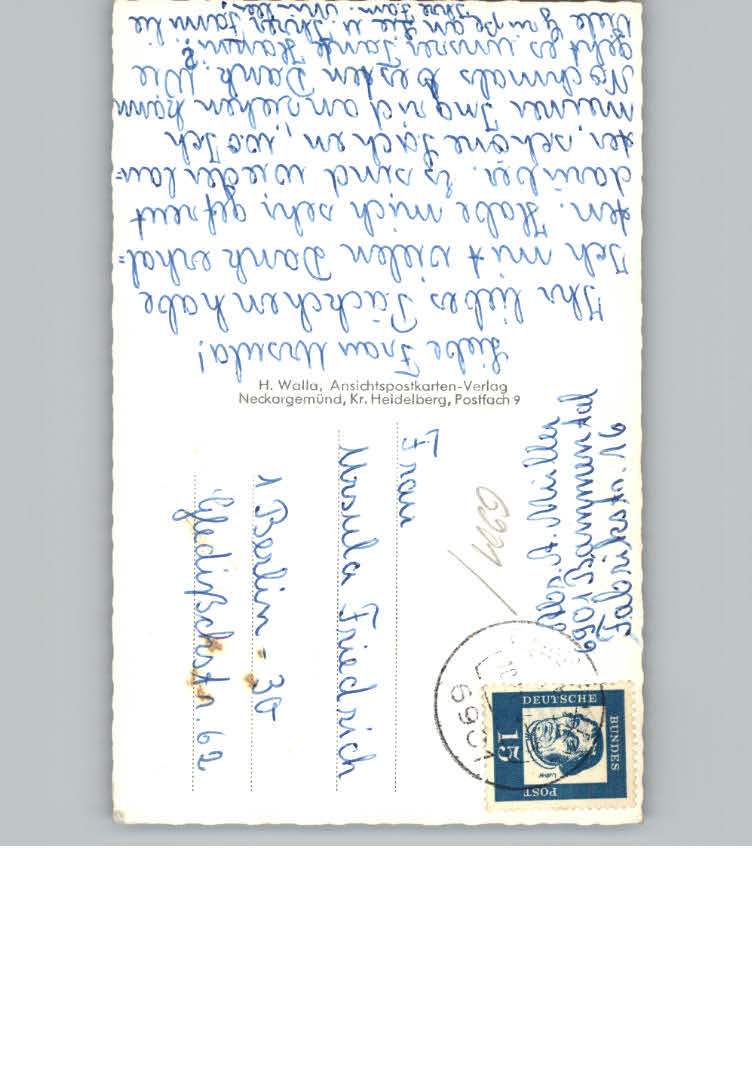 Liebe Frau Ursula!
Ihr liebes Päckchen habe
Ich mit vielen Dank erhal=
ten. Habe mich sehr gefreut
darüber. Es sind wieder lau=
ter schöne Sachen, wo Ich
meiner Ingrid anziehen kann
Nochmals besten Dank. Wie
geht es unsrer Tante Hanni?
Viele Grüße an Sie u. Ihrer Familie
Ihre Fam.
H. Walla, Ansichtspostkarten-Verlag
Neckargemünd, Kr. Heidelberg, Postfach 9
A. Müller
6901 Bammental
Fabrikstr. 16
Frau
Ursula Friedrich
1 Berlin - 30
Gledißchstr. 62
6901
DEUTSCHE
BUNDES
POST
15
Luther